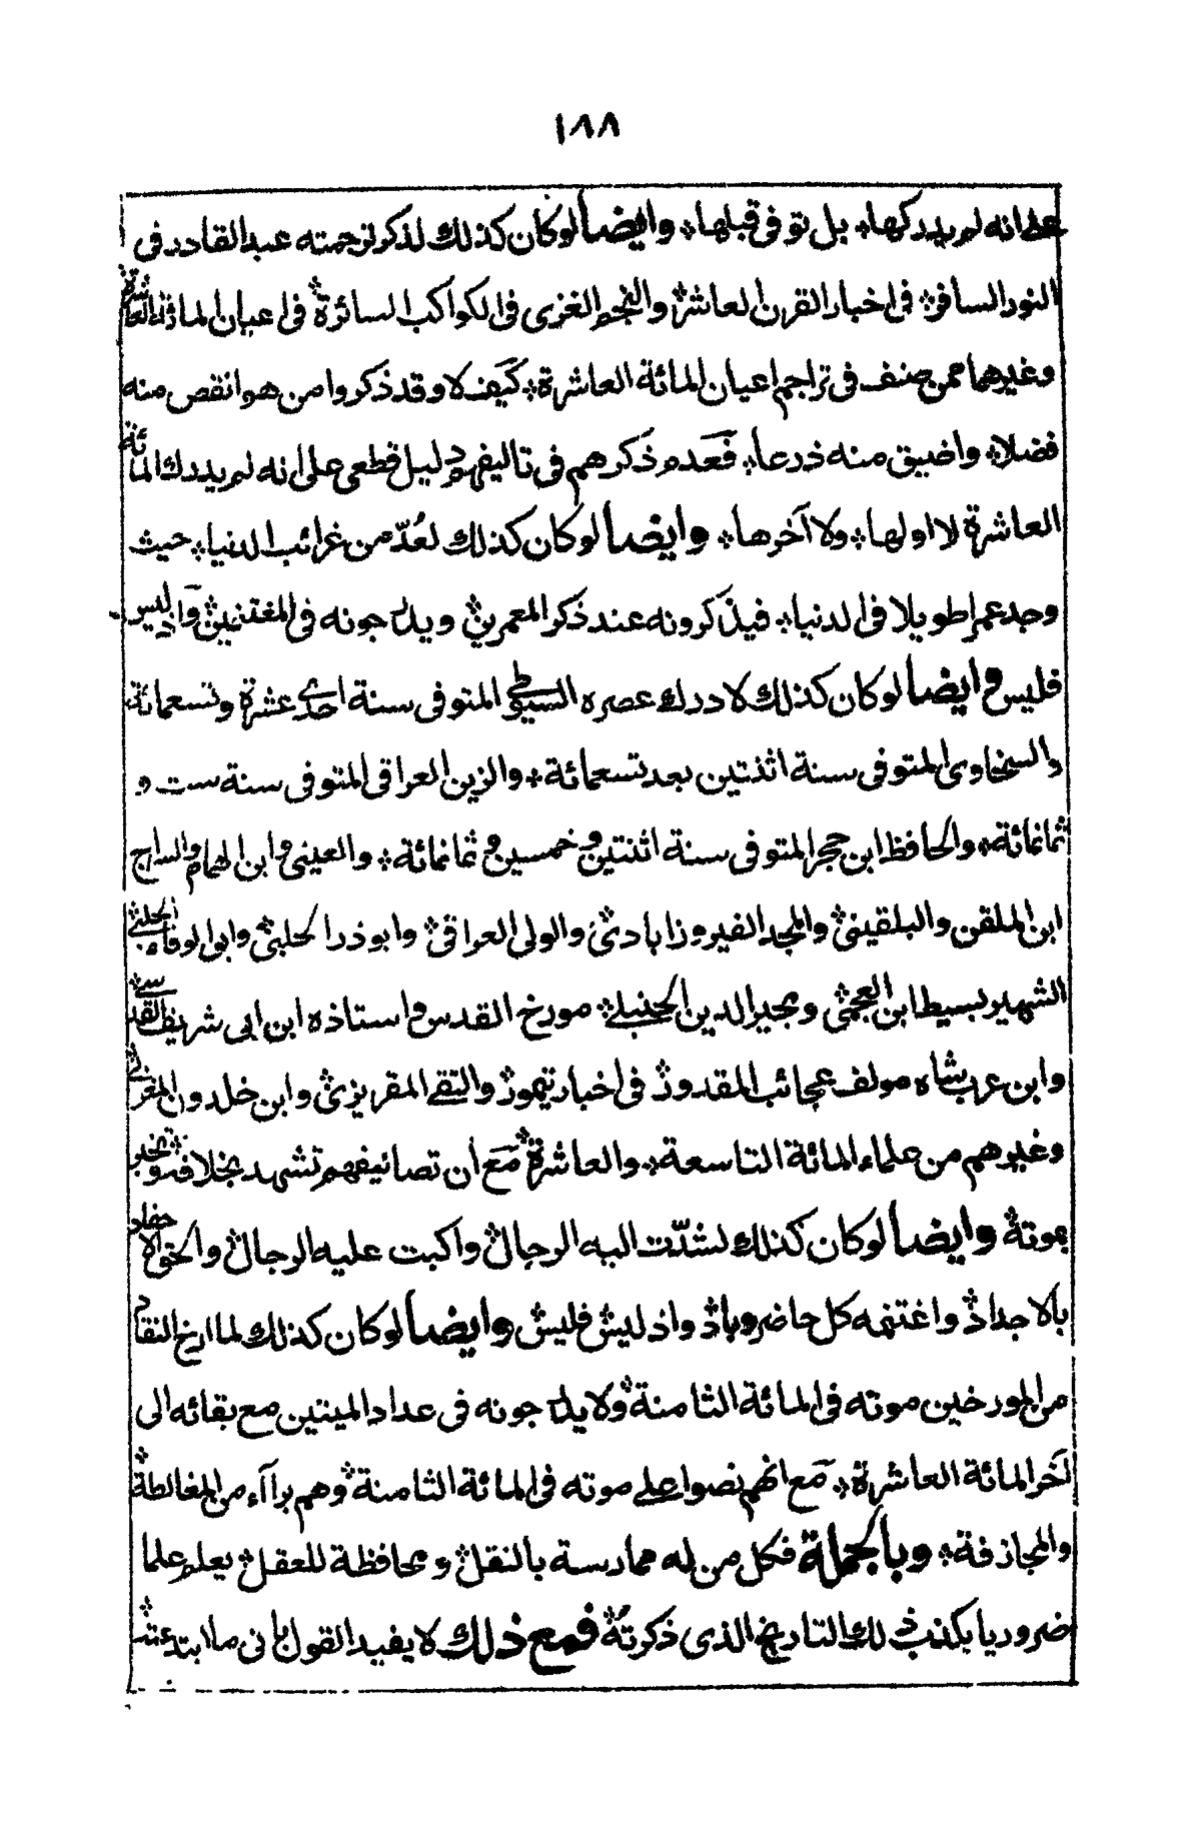 ١٨٨
على انه لم يدركها ؞ بل توفى قبلها ؞ وايضا لو كان كذلك لذكر ترجمته عبد القادر فى
النور السافر ؞ فى اخبار القرن العاشر ؞ والنجم الغزى فى الكواكب السائرة ؞ فى اعيان المائة العاشرة
وغيرهما ممن صنف فى تراجم اعيان المائة العاشرة ؞ كيف لا وقد ذكروا من هو انقص منه
فضلا ؞ واضيق منه ذرعا ؞ فعدم ذكرهم فى تاليفهم دليل قطعى على انه لم يدرك المائة
العاشرة لا اولها ؞ ولا آخرها ؞ وايضا لو كان كذلك لعُدّ من غرائب الدنيا ؞ حيث
وجد عمرا طويلا فى الدنيا ؞ فيذكرونه عند ذكر المعمرين ؞ ويدرجونه فى المغتنين ؞ واذ ليس
فليس وايضا لو كان كذلك لادرك عصره السيوطى المتوفى سنة احدى عشرة وتسعمائة ؞
والسخاوى المتوفى سنة اثنتين بعد تسعمائة ؞ والزين العراقى المتوفى سنة ست و
ثمانمائة ؞ والحافظ ابن حجر المتوفى سنة اثنتين وخمسين وثمانمائة ؞ والعينى وابن الهمام والسراج
ابن الملقن والبلقينى ؞ والمجد الفيروزابادى ؞ والولى العراقى ؞ وابو ذر الحلبى ؞ وابو الوفاء الحلبى ؞
الشهير بسبط ابن العجمى ؞ ومجير الدين الحنبلى ؞ مورخ القدس واستاذه ابن ابى شريف القدسى ؞
وابن عربشاه مولف عجائب المقدور ؞ فى اخبار تيمور ؞ والتقى المقريزى ؞ وابن خلدون المغربى ؞
وغيرهم من علماء المائة التاسعة ؞ والعاشرة ؞ مع ان تصانيفهم تشهد بخلافه ؞ وتخبر
بموته ؞ وايضا لو كان كذلك لشدّت اليه الرحال ؞ واكبت عليه الرجال ؞ والحق الاحفاد
بالاجداد ؞ واغتنمه كل حاضر وباد ؞ واذ ليس ؞ فليس ؞ وايضا لو كان كذلك لما ارخ النقاد
من المورخين موته فى المائة الثامنة ؞ ولا يدرجونه فى عداد الميتين مع بقائه الى
آخر المائة العاشرة ؞ مع انهم نصوا على موته فى المائة الثامنة ؞ وهم براآء من المغالطة ؞
والمجازفة ؞ وبالجملة فكل من له ممارسة بالنقل ؞ ومحافظة للعقل ؞ يعلم علما
ضروريا بكذب ذلك التاريخ الذى ذكرته ؞ فمع ذلك لا يفيد القول بانى ما ابتدعته ؞